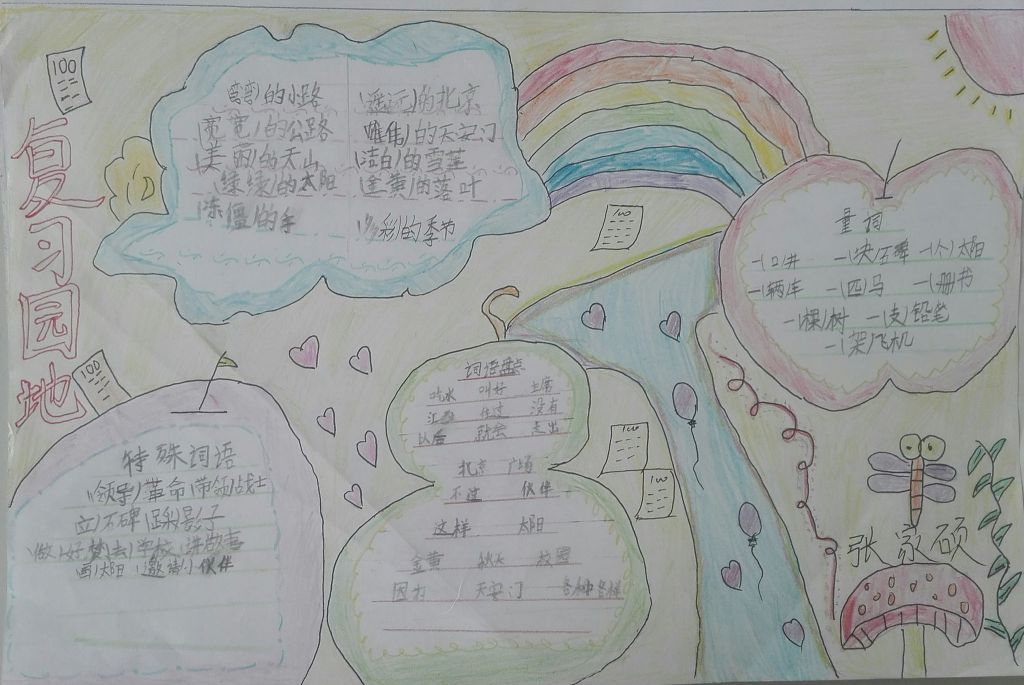 复习园地
100
(弯弯)的小路
(宽宽)的公路
(美丽)的天山
(绿绿)的太阳
(冻僵)的手
(遥远)的北京
(雄伟)的天安门
(洁白)的雪莲
(金黄)的落叶
(多彩)的季节
100
量词
一(口)井 一(块)石碑 一(个)太阳
一(辆)车 一(匹)马 一(册)书
一(棵)树 一(支)铅笔
一(架)飞机
100
特殊词语
(领导)革命 (带领)战士
(立)石碑 (踩)影子
(做)好梦 (去)学校 (讲)故事
(画)太阳 (邀请)伙伴
词语盘点
吃水 叫好 主席
江西 住过 没有
以后 就会 走出
北京 广场
不过 伙伴
这样 太阳
金黄 秋天 校园
因为 天安门 各种各样
100
100
张家硕